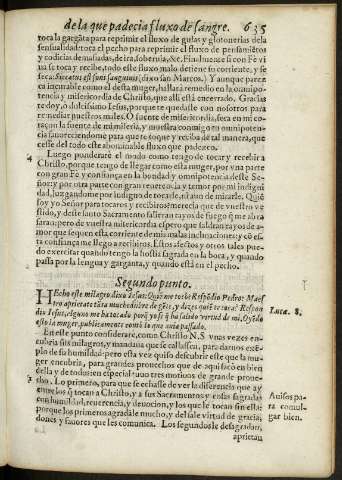 de la que padecia fluxo de sangre. 635
toca la gargãta para reprimir el fluxo de gulas y glotonerias de la
sensualidad: toca el pecho para reprimir el fluxo de pensamiẽtos
y codicias demasiadas, de ira, soberuia, &c. Finalmente si con Fè vi
ua se toca y recibe, todo este fluxo malo detiene su corriente, y se
seca: Siccatus est fons sanguinis (dixo san Marcos.) Y aunque pare
ca incurable como el desta muger, hallarà remedio en la omnipo-
tencia y misericordia de Christo, que alli està encerrado. Gracias
te doy, ò dulcissimo Iesus, porque te quedaste con nosotros para
remediar nuestros males. O fuente de misericordia, seca en mi co-
raçon la fuente de mi miseria, y muestra conmigo tu omnipoten-
cia fauoreciendome para que te toque y reciba de tal manera, que
cesse del todo este abominable fluxo que padezco.
4 Luego ponderarè el modo como tengo de tocar y recebir a
Christo, porque tengo de llegar como esta muger, por vna parte
con gran Fè y confiança en la bondad y omnipotencia deste Se-
ñor: y por otra parte con gran reuerencia y temor por mi indigni
dad, juzgandome por indigno de tocarle, ni aun de mirarle. Quiẽ
soy yo Señor para tocaros y recibiros? merecia que de vuestro ve
stido, y deste santo Sacramento salieran rayos de fuego q̃ me abra
sàra: pero de vuestra misericordia espero que saldran rayos de a-
mor que sequen esta corriente de mis malas inclinaciones: y cõ es-
ta confiança me llego a recibiros. Estos afectos y otros tales pue-
do exercitar quando tengo la hostia sagrada en la boca, y quando
passa por la lengua y garganta, y quando està en el pecho.
Segundo punto.
HEcho este milagro dixo Iesus: Quiẽ me tocò? Respõdio Pedro: Maes
tro aprietate tãta muchedũbre de gẽte, y dezes quiẽ te tocò? Respon
dio Iesus, alguno me ha tocado porq̃ yo sè q̃ ha salido virtud de mi. Oyẽdo
esto la muger, publicamente contò lo que auia passado.
Luca. 8.
En este punto considerarè, como Christo N. S. vnas vezes en-
cubria sus milagros, y mandaua que se callassen, para darnos exẽ-
plo de su humildad: pero esta vez quiso descubrir este que la mu-
ger encubria, para grandes prouechos que de aqui sacò en bien
della y de todos: en especial tuuo tres motiuos de grande proue-
cho. Lo primero, para que se echasse de ver la diferencia que ay
entre los q̃ tocan a Christo, y a sus Sacramentos y cosas sagradas
con humildad, reuerencia, y deuocion, y los que le tocan sin esto:
porque los primeros agradãle mucho, y del sale virtud de gracia,
dones y fauores que les comunica. Los segundos le desagradan,
Auisos pa-
ra comul-
gar bien.
aprietan